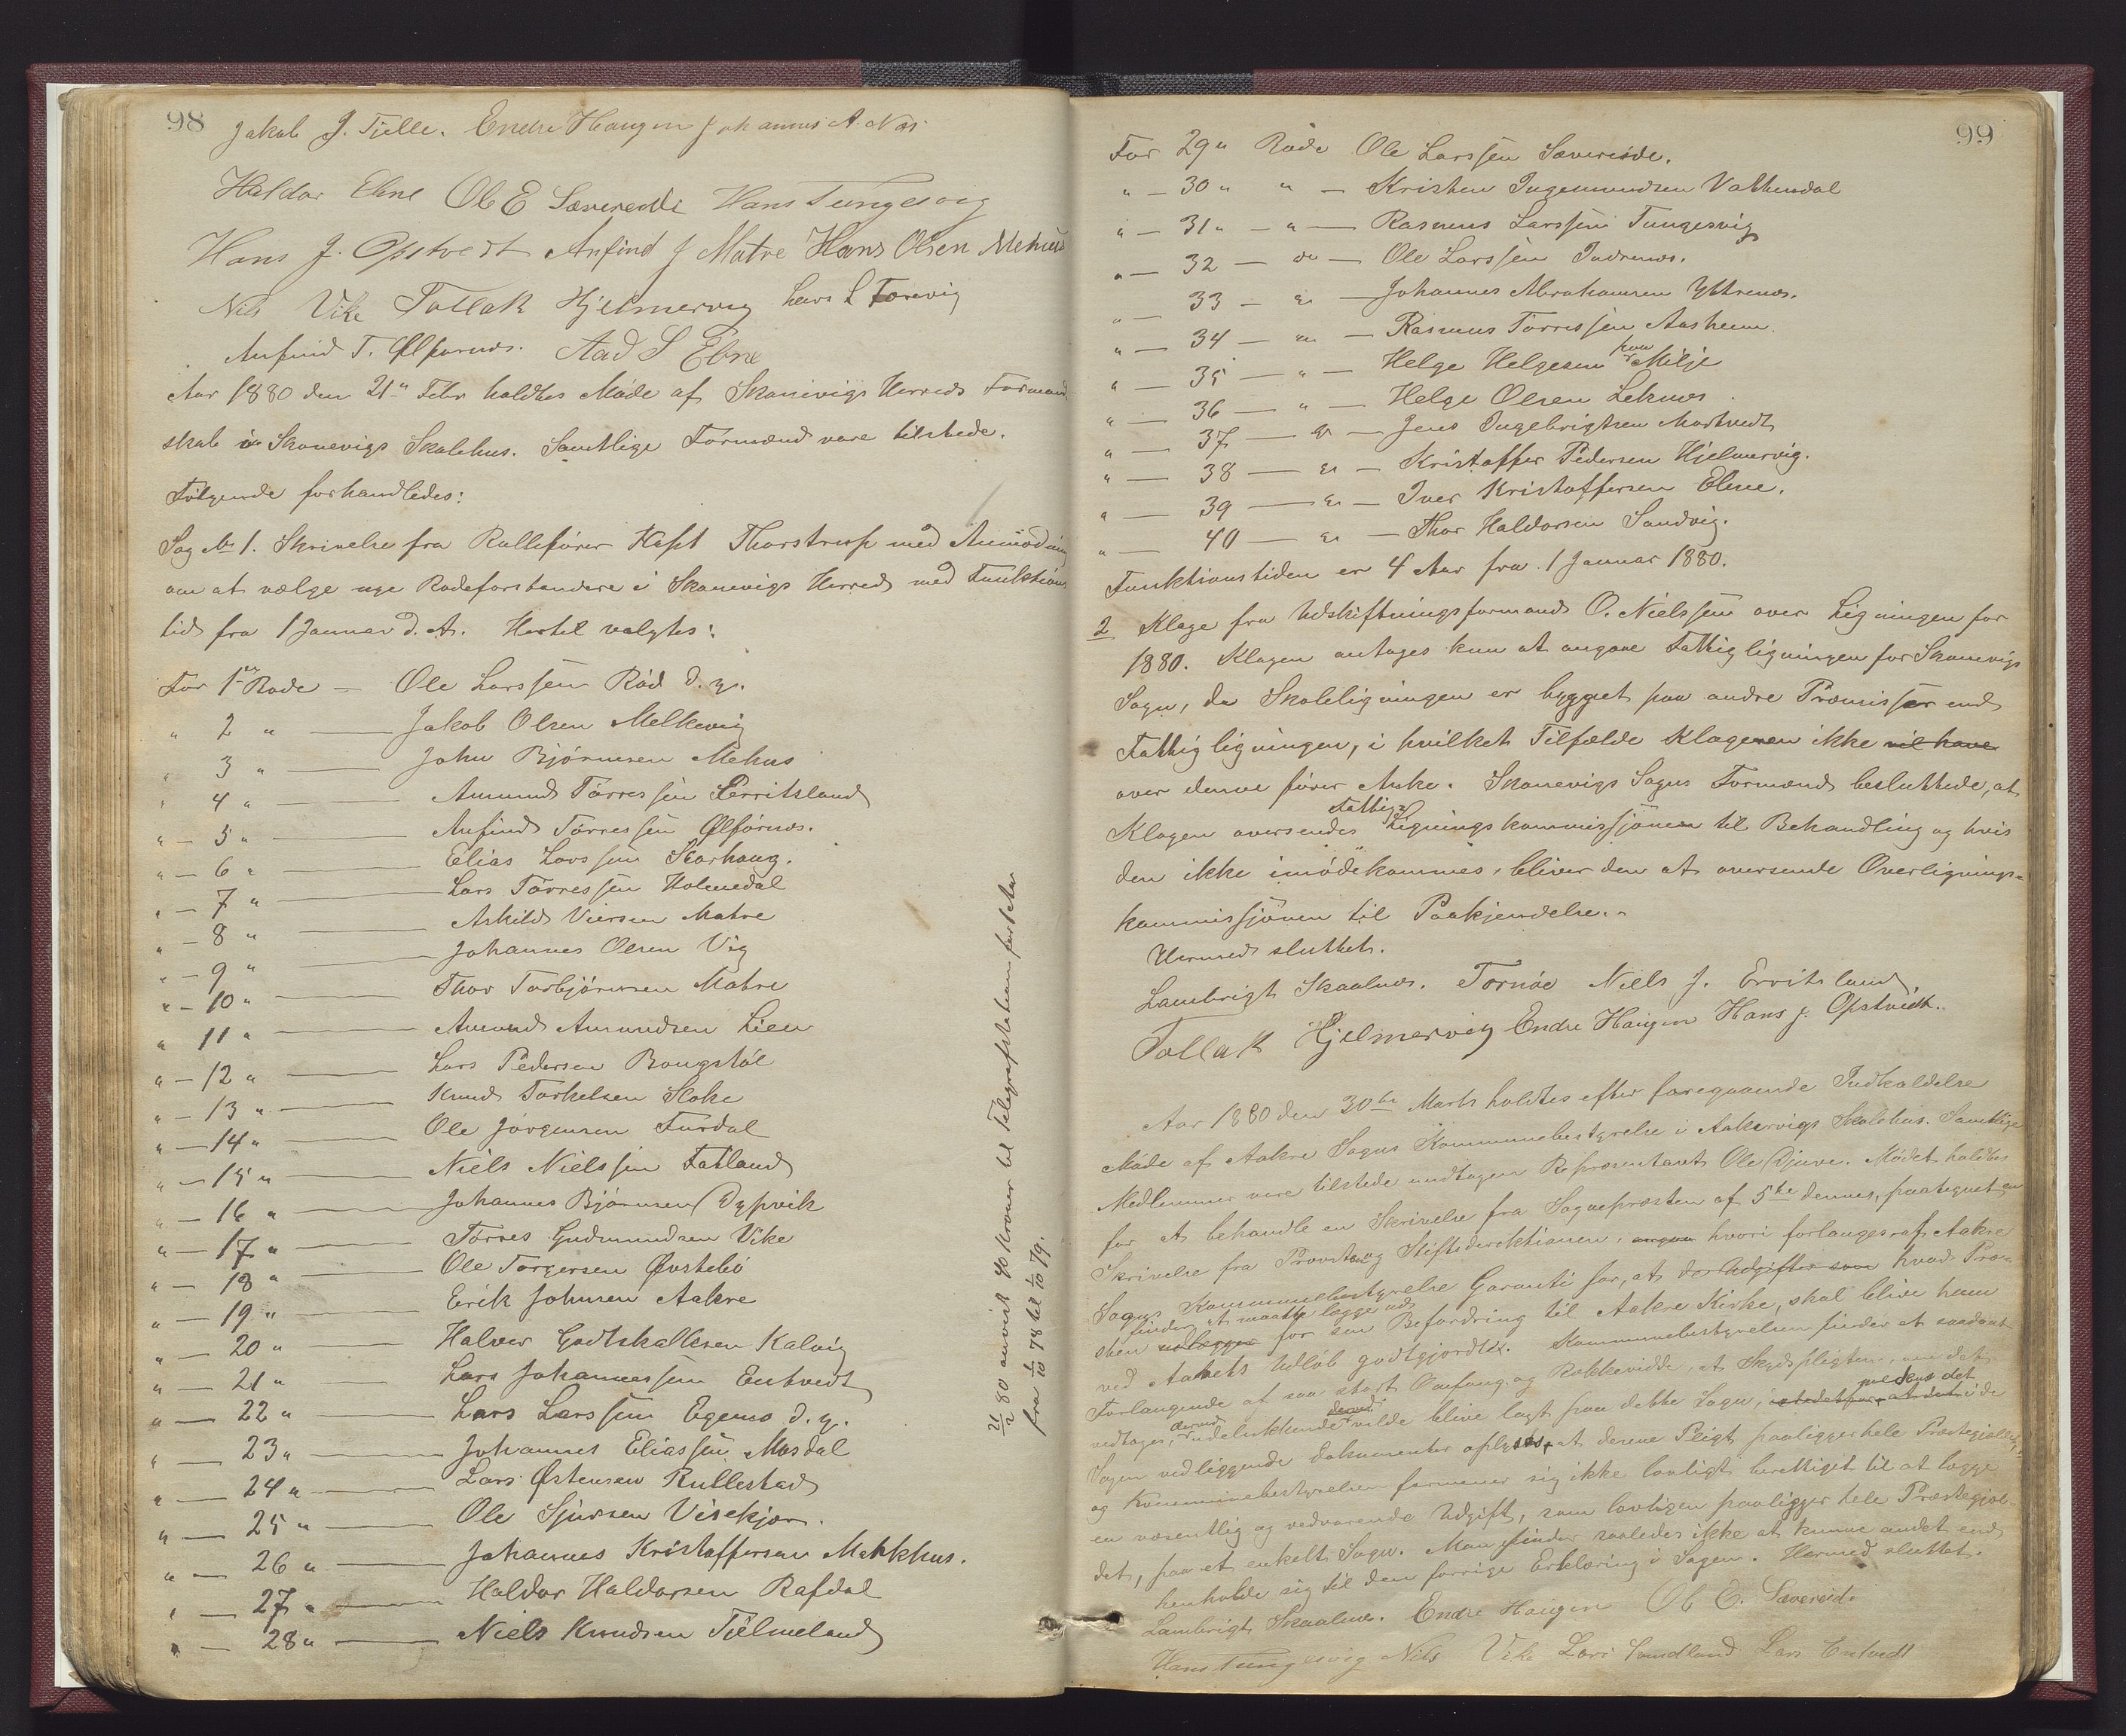 98
Jakob J. Tjelle. Endre Haugen Johannes A. Næs
Haldor Ebne Ole E Sævereide Hans Tungesvig
Hans J. Opstvedt Anfind J Matre Hans Olsen Mehus
Nils Vike Tollak Hjelmervig Lars L Torevig
Anfind T. Ølfarnæs. Aad S Ebne
Aar 1880 den 21de Febr holdtes Møde af Skonevigs Herreds Formand
skab i Skonevigs Skolehus. Samtlige Formænd vare tilstede.
Følgende forhandledes:
Sag No 1. Skrivelse fra Rullefører Kapt Thorstrup med Anmodning
om at vælge nye Rodeforstandere i Skonevigs Herred med Funktions
tid fra 1 Januar d. A. Hertil valgtes:
For 1ste Rode — Ole Larssen Rød d. y.
" 2 " — Jakob Olsen Melkevig
" 3 " — John Bjørnsen Mehus
" 4 " — Amund Tørressen Erritsland
" — 5 " — Anfind Tørressen Ølfarnæs.
" — 6 " — Elias Larssen Skarhaug.
" — 7 " — Lars Tørressen Holmedal
" — 8 " — Askild Viersen Matre
" — 9 " — Johannes Olsen Vig
" — 10 " — Thor Torbjørnsen Matre
" 11 " — Amund Amundsen Lien
" — 12 " — Lars Pedersen Bougstøl
" — 13 " — Knud Torkelsen Stoke
" — 14 " — Ole Jørgensen Furdal
" — 15 " — Niels Nielssen Fatland
" — 16 " — Johannes Bjørnsen Dypvik
" — 17 " — Tørres Gudmundsen Vike
" — 18 " — Ole Torgersen Øvstebø
" — 19 " — Erik Johnsen Aakre
" — 20 " — Halvor Godtskalksen Kalvig
" — 21 " — Lars Johannessen Entvedt
" — 22 " — Lars Larssen Egenæs d. y.
" — 23 " — Johannes Eliassen Mosdal
" — 24 " — Lars Østensen Rullestad
" — 25 " — Ole Sjursen Visekjøn.
" — 26 " — Johannes Kristoffersen Mækkhus.
" — 27 " — Haldor Haldorsen Rafdal
" — 28 " — Niels Knudsen Tjelmeland
21/2 80 anvist 40 Kroner til Telegrafstation for et Aar
fra 1/10 78 til 1/10 79.
99
For 29 " Rode Ole Larssen Sævereide.
" — 30 " " — Kristen Ingemundsen Vattendal
" — 31 " — " — Rasmus Larssen Tungesvig
" — 32 — " — Ole Larssen Indrenæs.
" — 33 — " — Johannes Abrahamsen Yttrenæs.
" — 34 — " — Rasmus Tørressen Aasheim.
" — 35 — " — Helge Helgesen paa Milje
" — 36 — " — Helge Olsen Leknæs
" — 37 — " — Jens Ingebrigtsen Mortvedt
" — 38 — " — Kristoffer Pedersen Hjelmervig.
" — 39 — " — Iver Kristoffersen Ebne.
" — 40 — " — Thor Haldorsen Sandvig.
Funktionstiden er 4 Aar fra 1 Januar 1880.
2 Klage fra Udskiftningsformand O. Nielssen over Ligningen for
1880. Klagen antages kun at angaae Fattigligningen for Skonevigs
Sogn, da Skoleligningen er bygget paa andre Præmisser end
Fattigligningen, i hvilket Tilfælde Klageren ikke vil have
over denne fører Anke. Skonevigs Sogns Formænd besluttede, at
Klagen oversendes Fattig Ligningskommissjonen til Behandling og hvis
den ikke imødekommes, bliver den at oversende Overlignings=
kommissjonen til Paakjendelse.
Hermed sluttet.
Lambrigt Skaalnæs. Tornøe Niels J. Erritsland
Tollak Hjelmervig Endre Haugen Hans J. Opstvedt.
Aar 1880 den 30te Marts holdtes efter foregaaende Indkaldelse
Møde af Aakre Sogns Kommunebestyrelse i Aakervigs Skolehus. Samtlige
Medlemmer vare tilstede undtagen Repræsentant Ole Djuve. Mødet holdtes
for at behandle en Skrivelse fra Sognepræsten af 5te dennes, paategnet en
Skrivelse fra Provsten og Stiftsdirektionen, angaa hvori forlanges af Aakre
Sogns Kommunebestyrelse Garanti for, at de Udgifter som hvad Præ=
sten udlægger finder at maatte lægge ud for sin Befordring til Aakre Kirke, skal blive ham
ved Aarets Udløb godtgjordt. Kommunebestyrelsen finder at saadant
Forlangende af saa stort Omfang og Rækkevidde, at Skydspligten, om det
vedtages, derved udelukkende vilde blive lagt paa dette Sogn, istedetfor at det i de
Sagen vedliggende Dokumenter oplyses, at denne Pligt paaligger hele Præstegjeldet,
og Kommunebestyrelsen formener sig ikke lovligt berettiget til at lægge
en væsentlig og vedvarende Udgift, som lovligen paaligger hele Præstegjel=
det, paa et enkelt Sogn. Man finder saaledes ikke at kunne andet end
henholde sig til den forrige Erklæring i Sagen. Hermed sluttet.
Lambrigt Skaalnæs. Endre Haugen Ole E. Sævereide.
Hans Tungesvig Nils Vike Lars Sundland Lars Entvedt